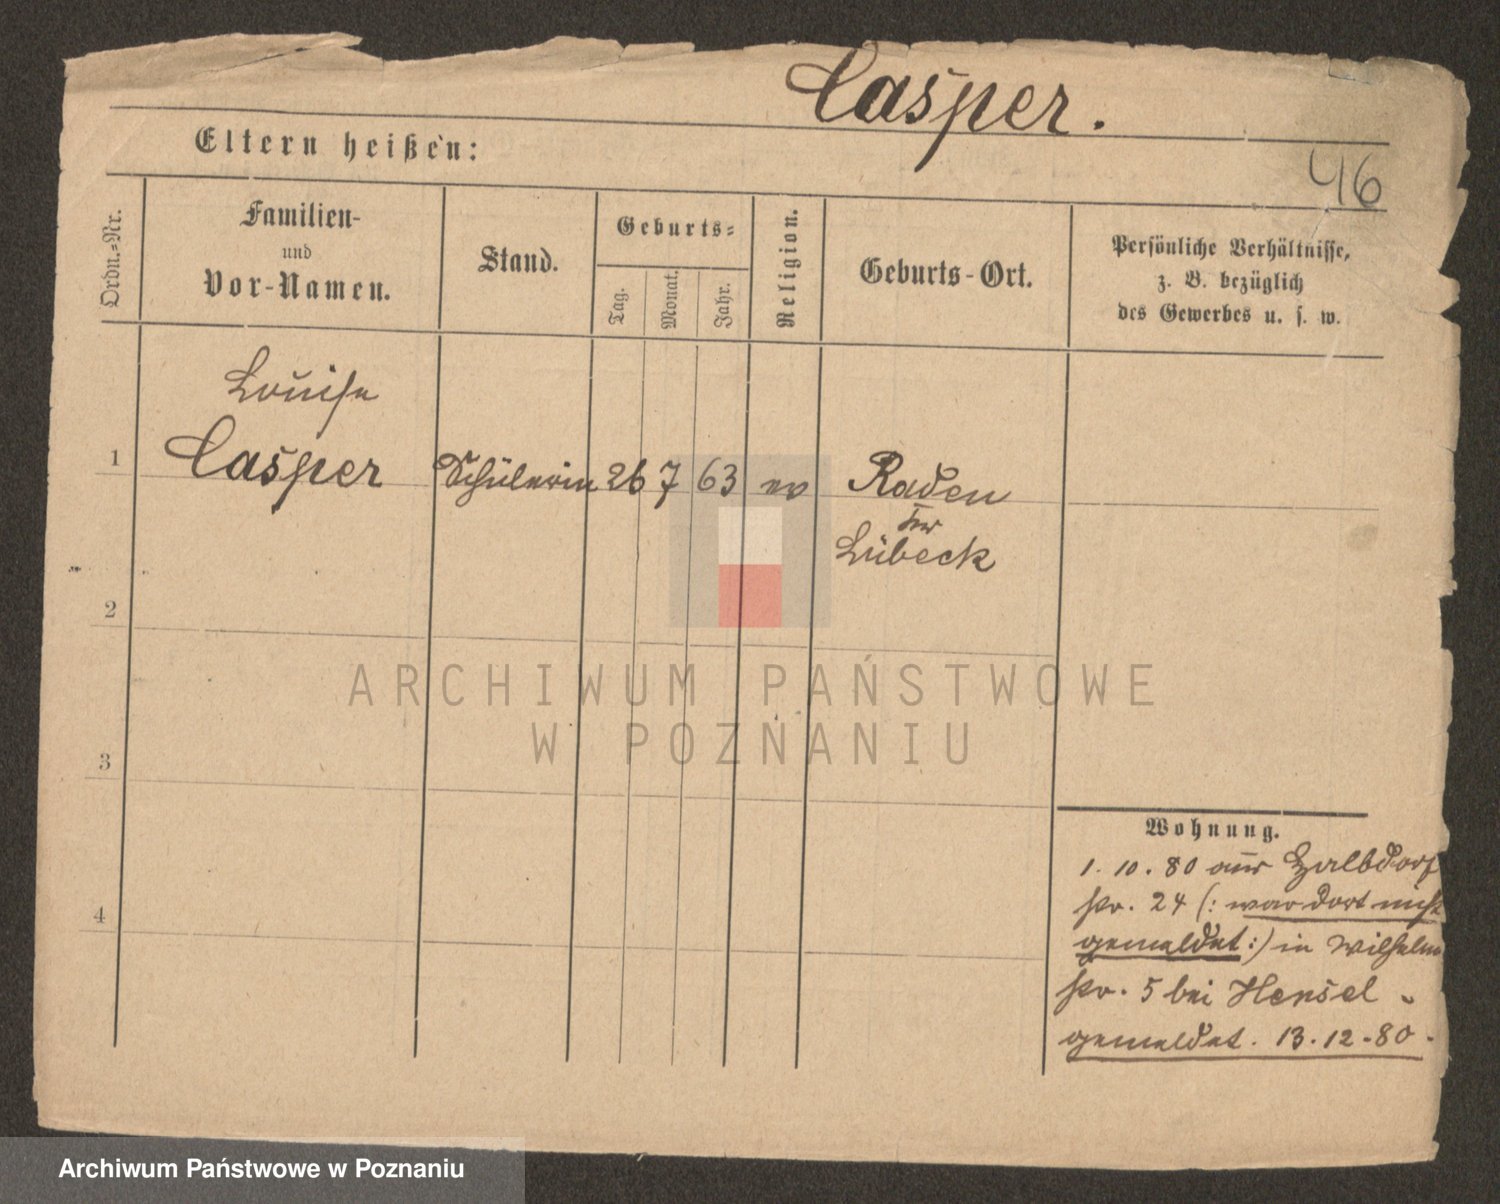 Casper.
Eltern heißen:
46
Ordn.-Nr.
Familien-
und
Vor-Namen.
Stand.
Geburts-
Tag.
Monat.
Jahr.
Religion.
Geburts-Ort.
Persönliche Verhältnisse,
z. B. bezüglich
des Gewerbes u. s. w.
Louise
1 Casper Schülerin 26 7 63 ev Raden
Lübeck
2
3
4
ARCHIWUM PAŃSTWOWE
W POZNANIU
Wohnung.
1. 10. 80 aus Halbdorf
str. 24 (: war dort nicht
gemeldet :) in Wilhelm
str. 5 bei Hensel
gemeldet. 13.12.80.
Archiwum Państwowe w Poznaniu